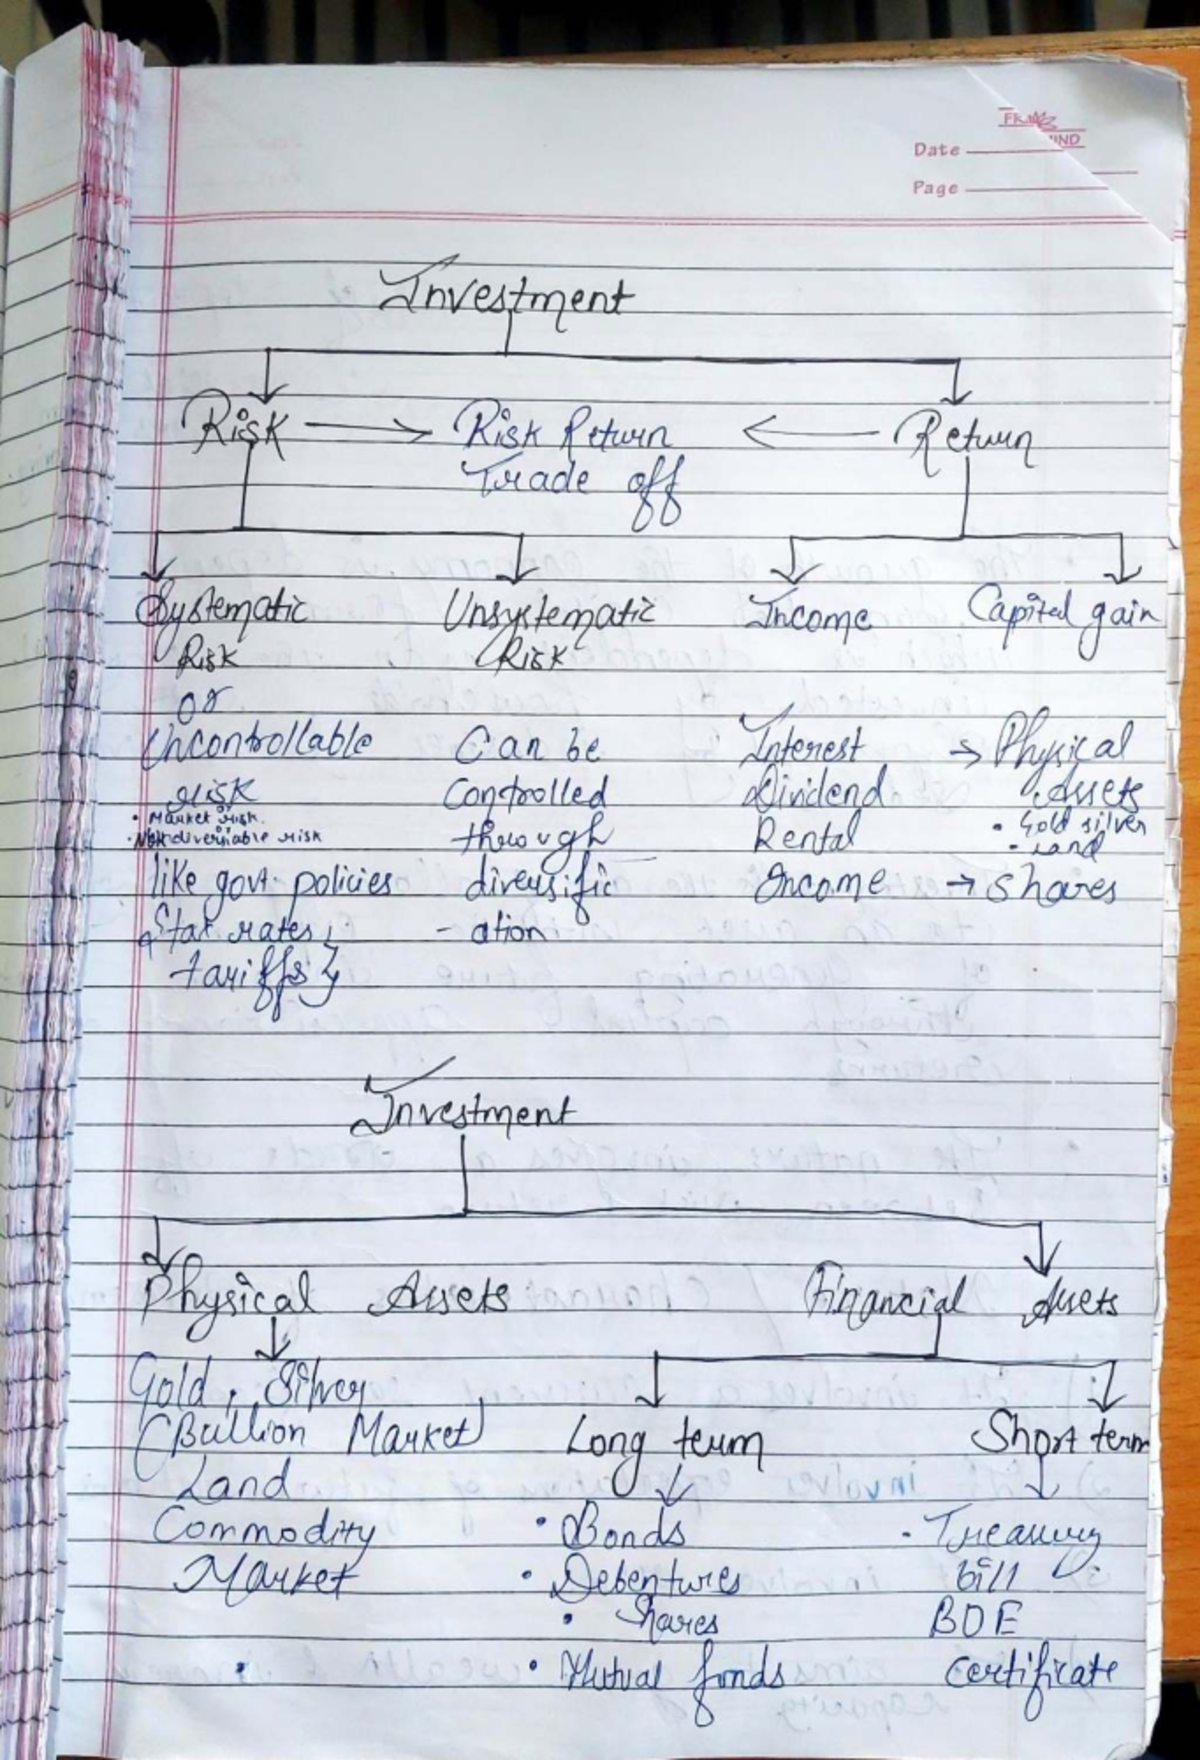 Date
Page
Investment
Risk → Risk Return ← Return
Trade off
Systematic Unsystematic Income Capital gain
Risk Risk
or
Uncontrollable Can be Interest → Physical
risk Controlled Dividend Assets
• Market risk. through Rental • Gold silver
or
• risk • Land
like govt. policies diversific Income → Shares
rates, - ation
tariffs}
Investment
Physical Assets Financial Assets
Gold, Silver
(Bullion Market) Long term Short term
Land
Commodity • Bonds • Treasury
Market • Debentures bill
• Shares BOE
• Mutual fonds Certificate